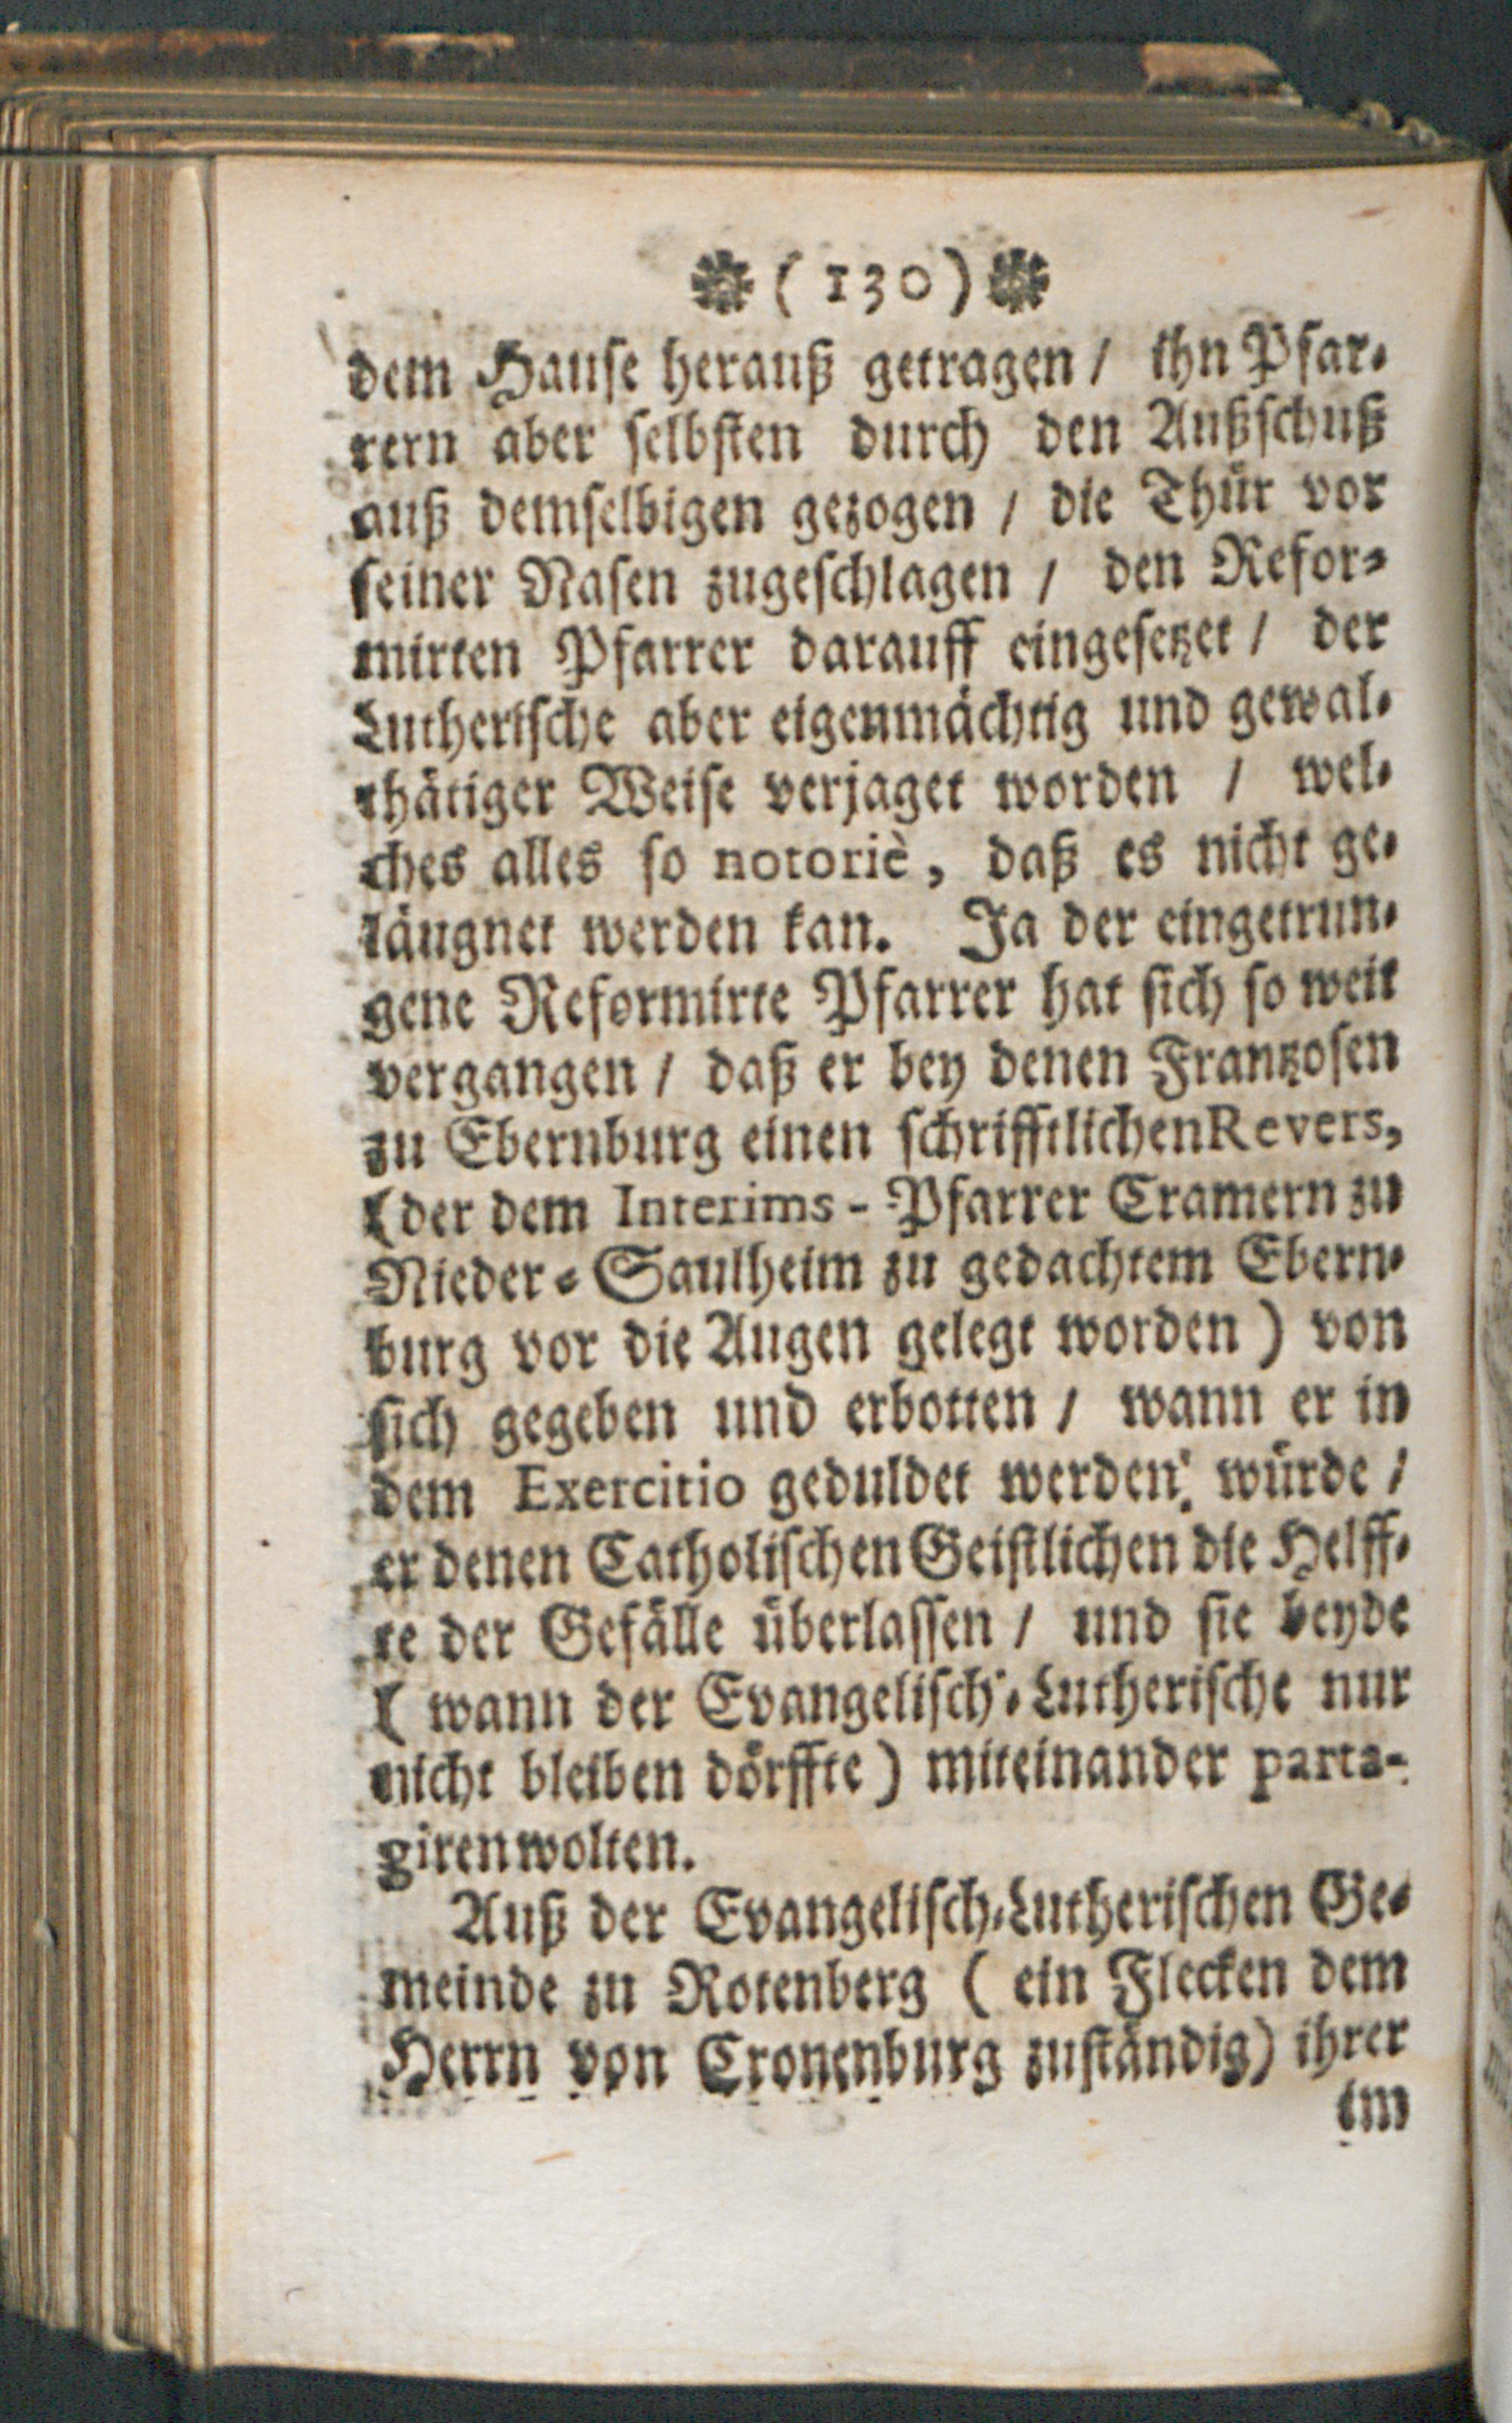 (130)
dem Hause herauß getragen / ihn Pfar-
rern aber selbsten durch den Außschuß
auß demselbigen gezogen / die Thür vor
seiner Nasen zugeschlagen / den Refor-
mirten Pfarrer darauff eingesetzet / der
Lutherische aber eigenmächtig und gewal-
thätiger Weise verjaget worden / wel-
ches alles so notoriè, daß es nicht ge-
längnet werden kan. Ja der eingetrun-
gene Reformirte Pfarrer hat sich so weit
vergangen / daß er bey denen Frantzosen
zu Ebernburg einen schrifftlichen Revers,
(der dem Interims-Pfarrer Cramern zu
Nieder-Saulheim zu gedachtem Ebern-
burg vor die Augen gelegt worden) von
sich gegeben und erbotten / wann er in
dem Exercitio geduldet werden würde /
er denen Catholischen Geistlichen die Helff-
te der Gefälle überlassen / und sie beyde
(wann der Evangelisch-Lutherische nur
nicht bleiben dörffte) miteinander parta-
giren wolten.
Auß der Evangelisch-Lutherischen Ge-
meinde zu Rotenberg (ein Flecken dem
Herrn von Cronenburg zuständig) ihrer
im